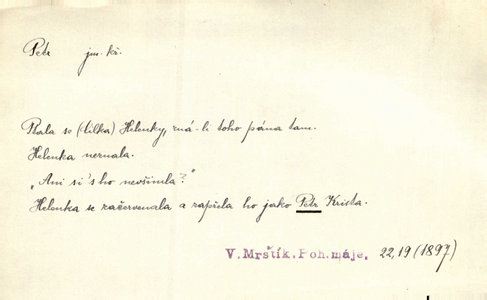 Petr jm. kř.
Ptala se (Lilka) Helenky, zná-li toho pána tam.
Helenka neznala.
„Ani si's ho nevšimla?"
Helenka se začervenala a zapřela ho jako Petr Krista.
V. Mrštík. Poh. máje, 22,19 (1897)